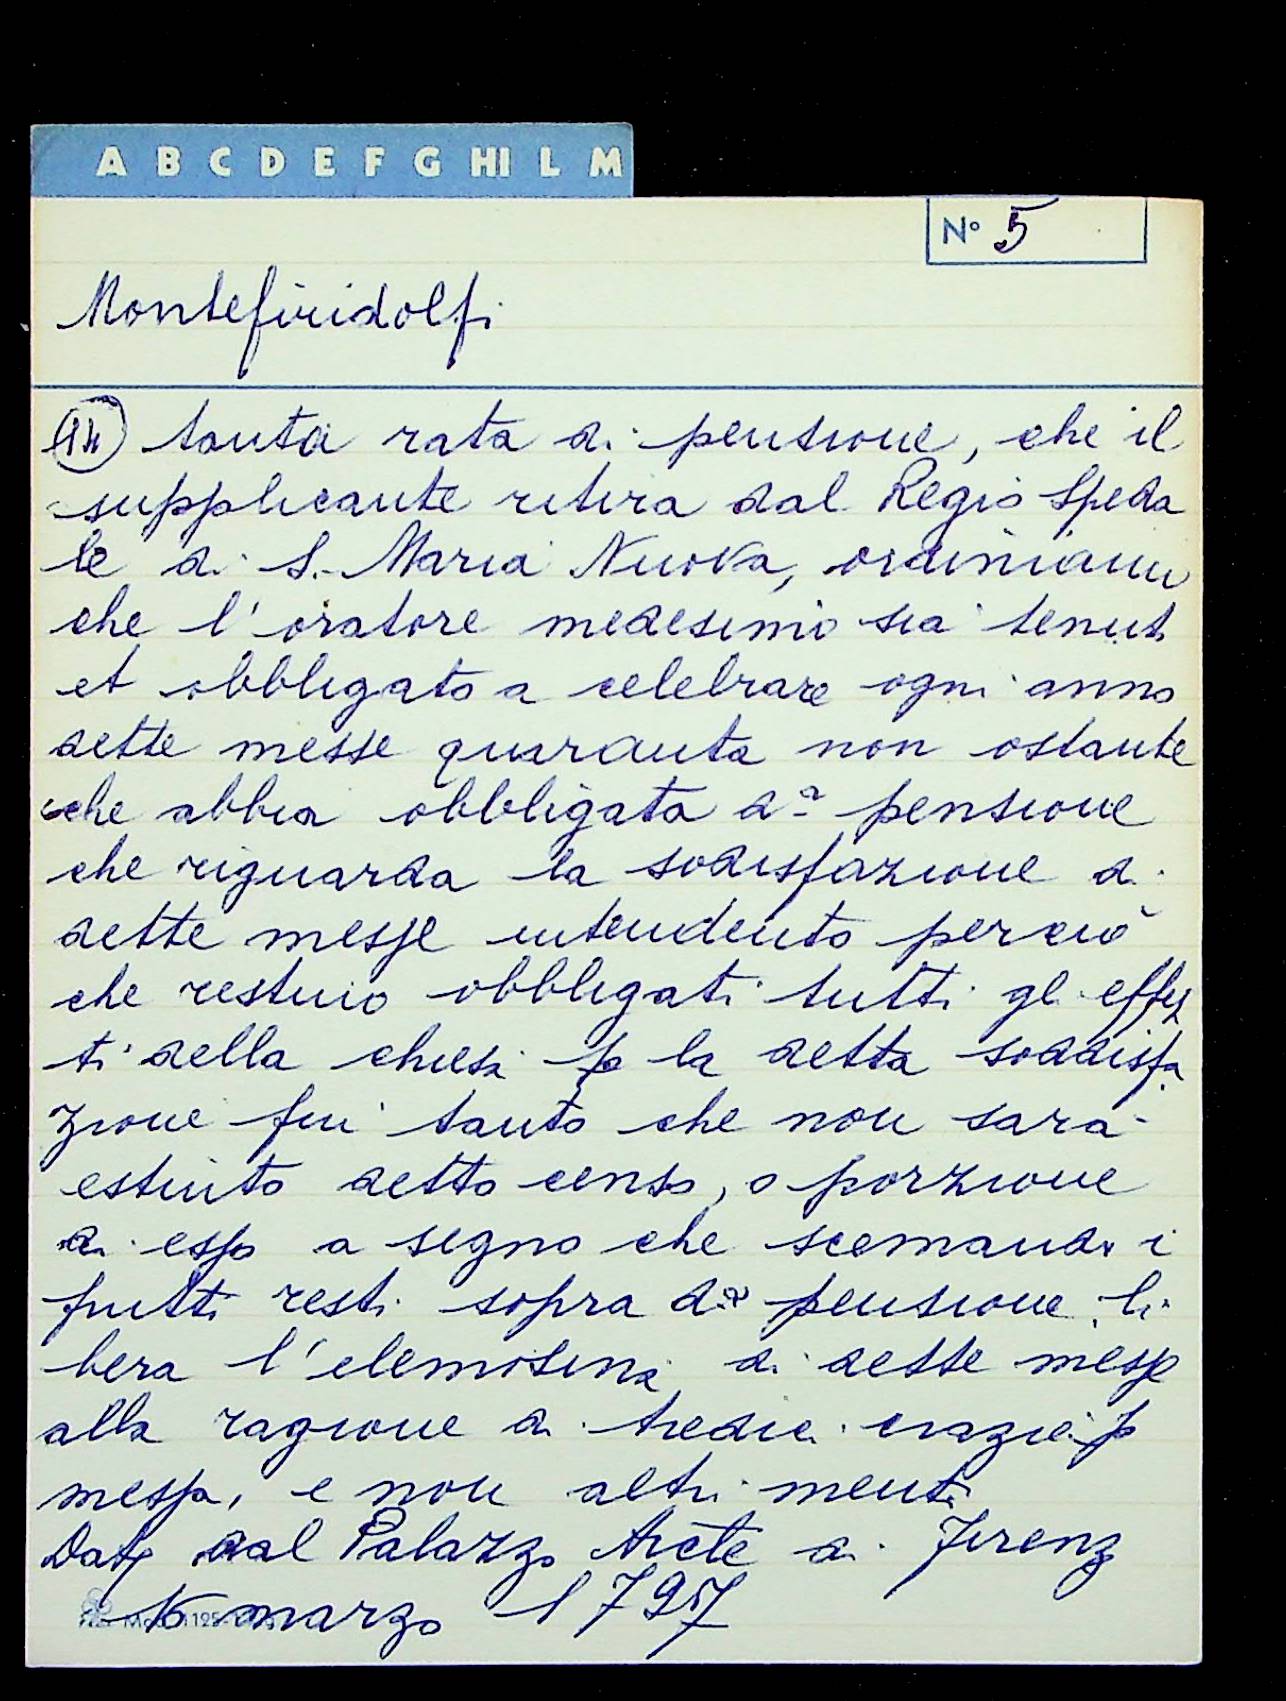 A B C D E F G HI L M
N° 5
Montefiridolfi
(14) tanta rata di pensione, che il
supplicante ritira dal Regio Speda
le di S. Maria Nuova, ordiniamo
che l'oratore medesimo sia tenuto
et obbligato a celebrare ogni anno
dette messe quaranta non ostante
che abbia obbligata da pensione
che riguarda la sodisfazione di
dette messe intendento perciò
che restino obbligati tutti gl effet
ti della chiesa p la detta soddisfa
zione fin tanto che non sarà
estinto detto censo, o porzione
di esso a segno che scemando i
frutti resti sopra da pensione li
bera l'elemosina di dette messe
alla ragione di tredici crazie p
messa, e non altrimenti
Dato dal Palazzo di Firenze
16 marzo 1797